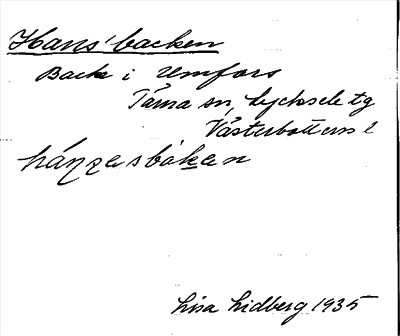 Hans'backen
Back i Umfors
Tärna sn, Lycksele tg
Västerbottens l
hánzasbákan
Lisa Lidberg 1935